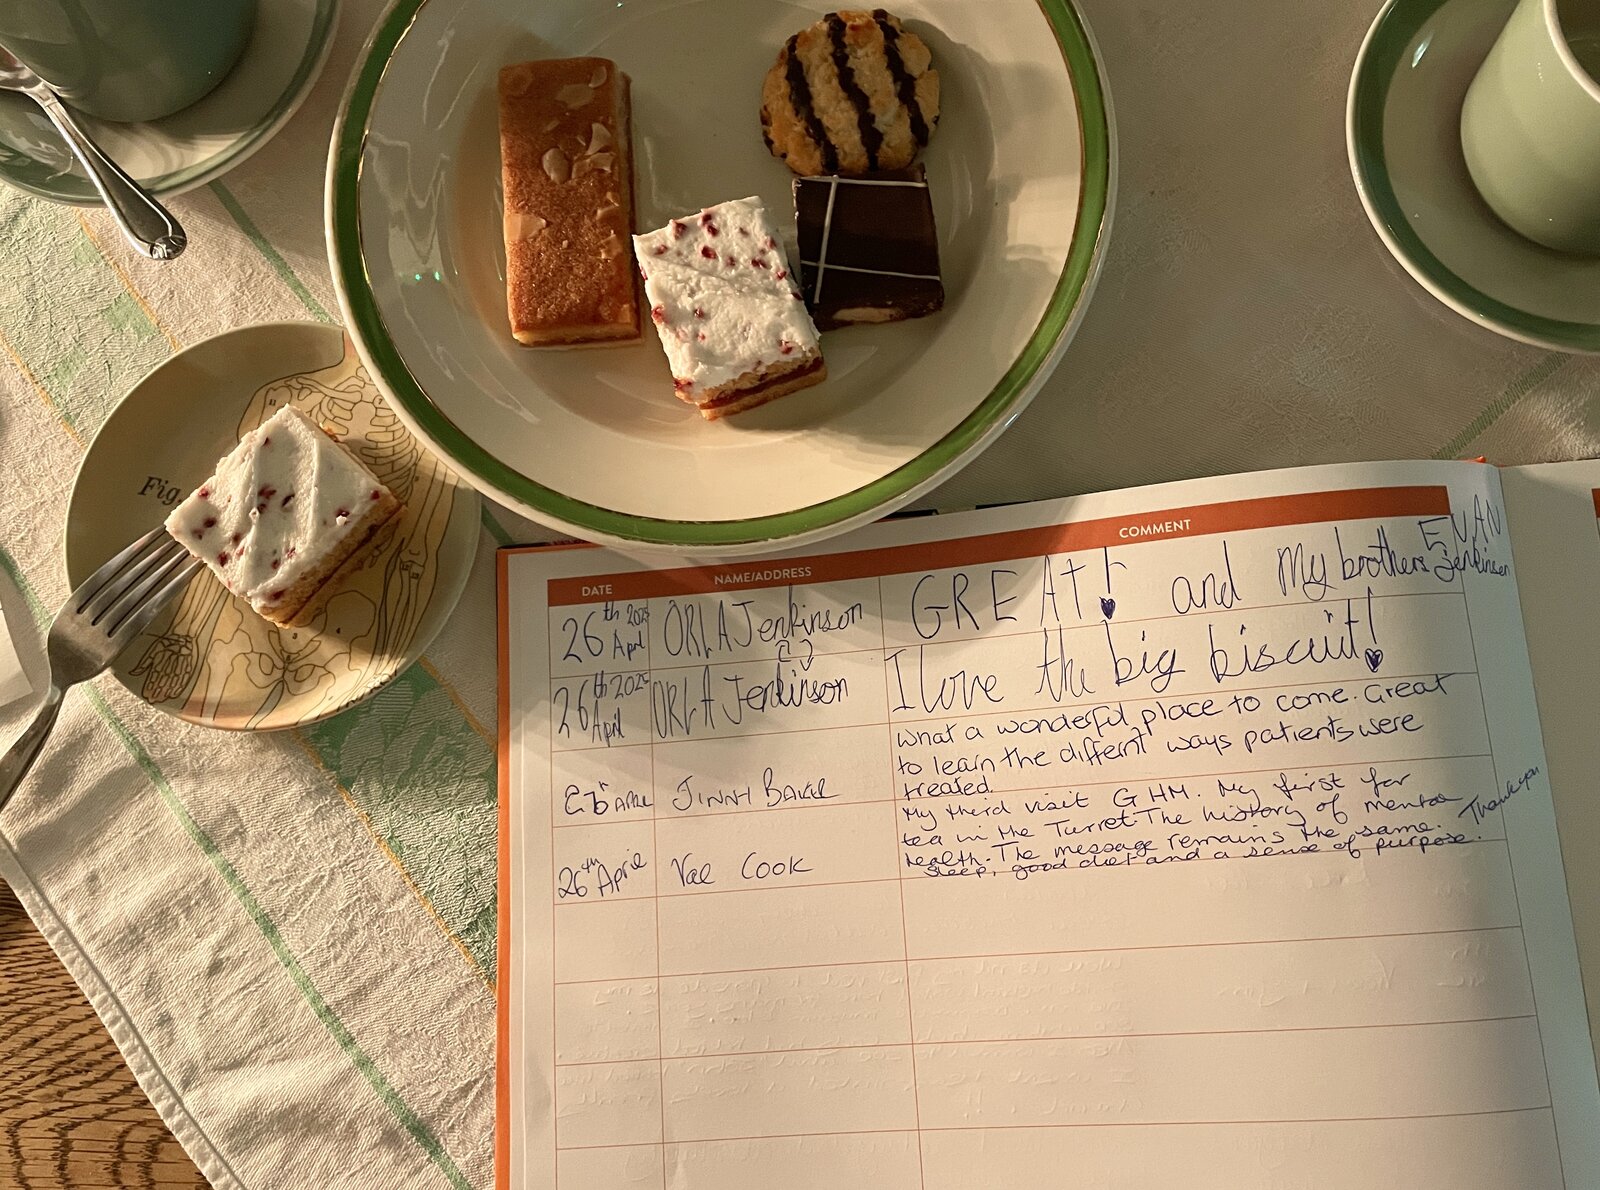 Fig.
DATE NAME/ADDRESS COMMENT
26th 2025 April ORLA Jenkinson GREAT! and My brothers EVAN Jenkinson
26th 2025 April ORLA Jenkinson I love the big biscuit!
What a wonderful place to come. Great
to learn the different ways patients were
treated.
April
My third visit GHM. My first for
tea in the Turret. The history of mental
health. The message remains the same.
Sleep, good diet and a sense of purpose.
Thank you
26th April Val Cook